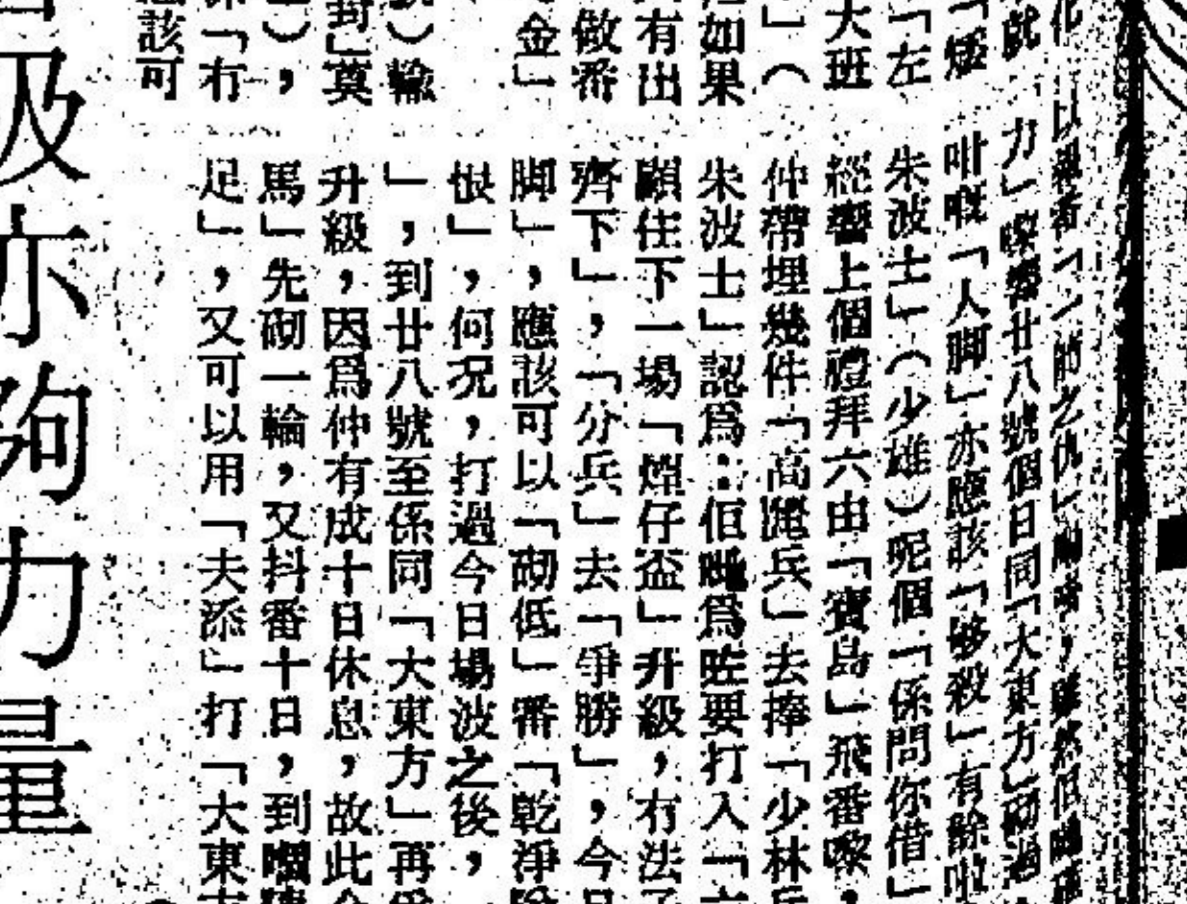 以報番「一箭之仇」
力」嚟響廿八號個日同「大東方」砌過
咁嘅「人脚」亦應該「够殺」有餘啦
朱波士」（少雄）呢個「係問你借」
經響上個禮拜六由「寶島」飛番嚟，
仲帶埋幾件「高麗兵」去捧「少林兵
朱波士」認爲：佢哋爲咗要打入「六
顧住下一場「煙仔盃」升級，冇法子
齊下」，「分兵」去「爭勝」，今日
脚」，應該可以「砌低」番「乾淨
恨」，何况，打過今日場波之後，
」，到廿八號至係同「大東方」再
升級，因爲仲有成十日休息，故此今
馬」先砌一輪，又抖番十日，到嗰陣
足」，又可以用「夫添」打「大東方
化
戲
「矮
「左
大班
」（
如果
有出
做番
金」
）輸
封」奠
），
係「冇
應該可
級亦夠力量